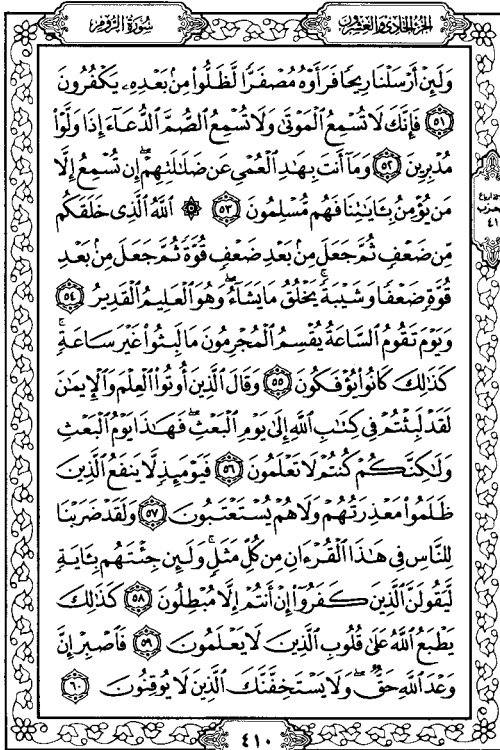 الجزء الحادي والعشرون
سورة الروم
وَلَئِنۡ أَرۡسَلۡنَا رِيحٗا فَرَأَوۡهُ مُصۡفَرّٗا لَّظَلُّواْ مِنۢ بَعۡدِهِۦ يَكۡفُرُونَ
٥١ فَإِنَّكَ لَا تُسۡمِعُ ٱلۡمَوۡتَىٰ وَلَا تُسۡمِعُ ٱلصُّمَّ ٱلدُّعَآءَ إِذَا وَلَّوۡاْ
مُدۡبِرِينَ ٥٢ وَمَآ أَنتَ بِهَٰدِ ٱلۡعُمۡيِ عَن ضَلَٰلَتِهِمۡۖ إِن تُسۡمِعُ إِلَّا
مَن يُؤۡمِنُ بِـَٔايَٰتِنَا فَهُم مُّسۡلِمُونَ ٥٣ ۞ ٱللَّهُ ٱلَّذِي خَلَقَكُم
مِّن ضَعۡفٖ ثُمَّ جَعَلَ مِنۢ بَعۡدِ ضَعۡفٖ قُوَّةٗ ثُمَّ جَعَلَ مِنۢ بَعۡدِ
قُوَّةٖ ضَعۡفٗا وَشَيۡبَةٗۚ يَخۡلُقُ مَا يَشَآءُۖ وَهُوَ ٱلۡعَلِيمُ ٱلۡقَدِيرُ ٥٤
وَيَوۡمَ تَقُومُ ٱلسَّاعَةُ يُقۡسِمُ ٱلۡمُجۡرِمُونَ مَا لَبِثُواْ غَيۡرَ سَاعَةٖۚ
كَذَٰلِكَ كَانُواْ يُؤۡفَكُونَ ٥٥ وَقَالَ ٱلَّذِينَ أُوتُواْ ٱلۡعِلۡمَ وَٱلۡإِيمَٰنَ
لَقَدۡ لَبِثۡتُمۡ فِي كِتَٰبِ ٱللَّهِ إِلَىٰ يَوۡمِ ٱلۡبَعۡثِۖ فَهَٰذَا يَوۡمُ ٱلۡبَعۡثِ
وَلَٰكِنَّكُمۡ كُنتُمۡ لَا تَعۡلَمُونَ ٥٦ فَيَوۡمَئِذٖ لَّا يَنفَعُ ٱلَّذِينَ
ظَلَمُواْ مَعۡذِرَتُهُمۡ وَلَا هُمۡ يُسۡتَعۡتَبُونَ ٥٧ وَلَقَدۡ ضَرَبۡنَا
لِلنَّاسِ فِي هَٰذَا ٱلۡقُرۡءَانِ مِن كُلِّ مَثَلٖۚ وَلَئِن جِئۡتَهُم بِـَٔايَةٖ
لَّيَقُولَنَّ ٱلَّذِينَ كَفَرُوٓاْ إِنۡ أَنتُمۡ إِلَّا مُبۡطِلُونَ ٥٨ كَذَٰلِكَ
يَطۡبَعُ ٱللَّهُ عَلَىٰ قُلُوبِ ٱلَّذِينَ لَا يَعۡلَمُونَ ٥٩ فَٱصۡبِرۡ إِنَّ
وَعۡدَ ٱللَّهِ حَقّٞۖ وَلَا يَسۡتَخِفَّنَّكَ ٱلَّذِينَ لَا يُوقِنُونَ ٦٠
٤١
٤١٠